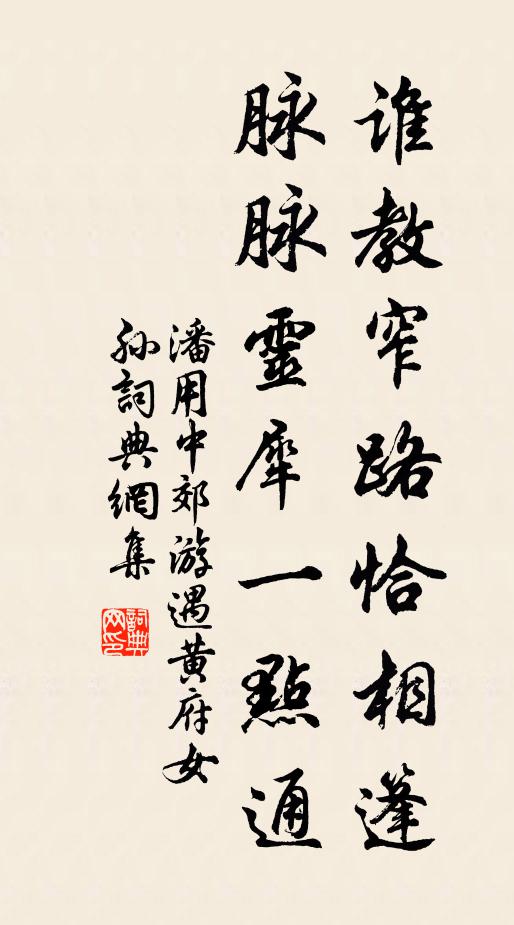 誰教窄路恰相蓬
脉脉靈犀一點通
潘用中郊游遇黄府女
孙詞典網集
詞典网印